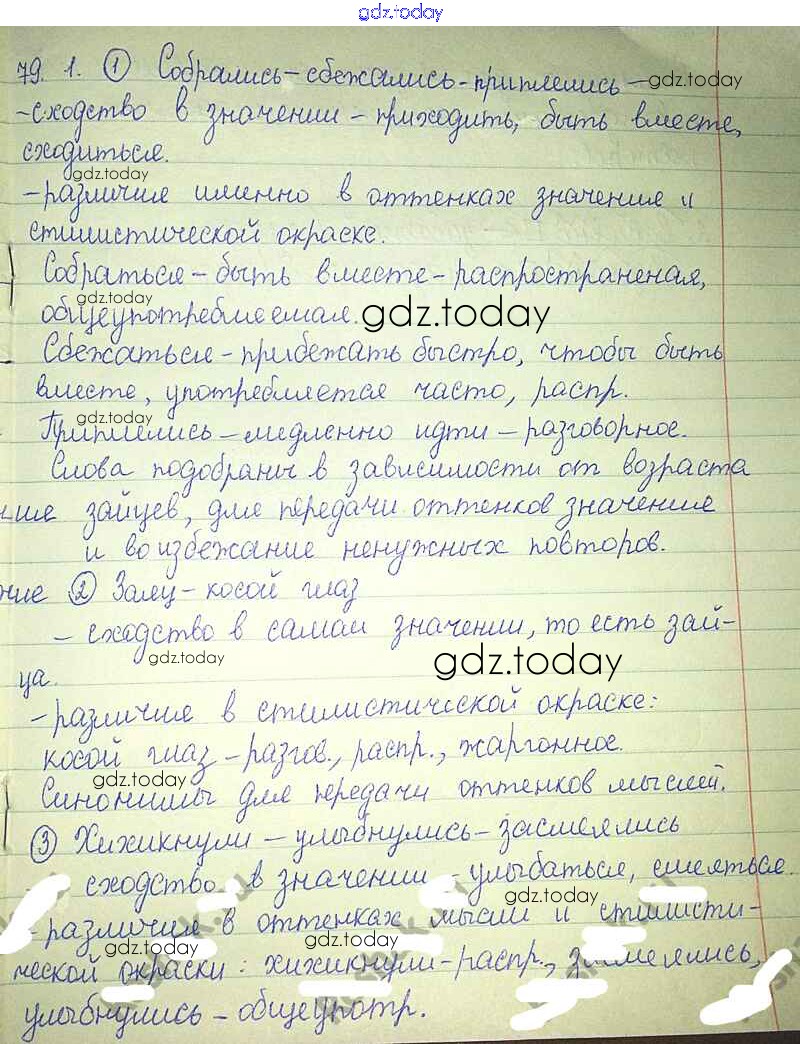 gdz.today
79. 1. ① Собрались – сбежались – приплелись – gdz.today
-сходство в значении – приходить, быть вместе,
сходиться.
gdz.today
-различия именно в оттенках значения и
стилистической окраске.
Собраться – быть вместе – распространеная,
gdz.today
общеупотребляемая. gdz.today
Сбежаться – прибежать быстро, чтобы быть
вместе, употребляется часто, распр.
gdz.today
Приплелись – медленно идти – разговорное.
Слова подобраны в зависимости от возраста
зайцев, для передачи оттенков значения
и во избежание ненужных повторов.
② Заяц – косой глаз
– сходство в самом значении, то есть зай-
gdz.today gdz.today
ца.
-различия в стилистической окраске:
косой глаз – разгов., распр., жаргонное.
gdz.today
Синонимы для передачи оттенков мыслей.
③ Хихикнули – улыбнулись – засмеялись
сходство в значении – улыбаться, смеяться.
gdz.today
-различия в оттенках мысли и стилисти-
gdz.today gdz.today
ческой окраски: хихикнули – распр., засмеялись,
улыбнулись – общеупотр.